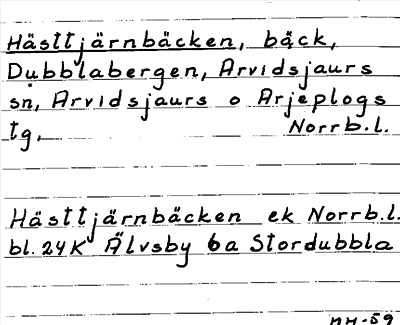 Hästtjärnbäcken, bäck,
Dubblabergen, Arvidsjaurs
sn, Arvidsjaurs o Arjeplogs
tg. Norrb.l.
Hästtjärnbäcken ek Norrb.l.
bl. 24K Älvsby 6a Stordubbla